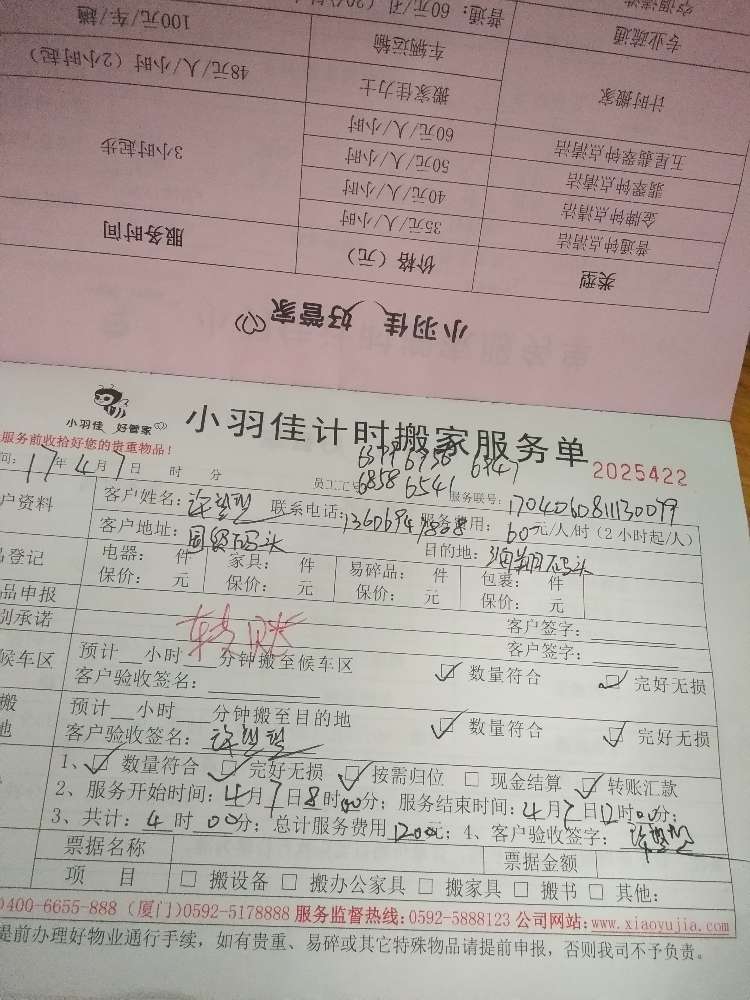 专业疏通
普通：60元/孔
计时搬家
车辆运输
100元/车/趟
搬家佳力士
48元/人/小时（2小时起）
五星翡翠钟点清洁
60元/人/小时
翡翠钟点清洁
50元/人/小时
3小时起步
金牌钟点清洁
40元/人/小时
普通钟点清洁
35元/人/小时
类型
价格（元）
服务时间
小羽佳 好管家
小羽佳 好管家
小羽佳计时搬家服务单
2025422
服务前收拾好您的贵重物品！
6858 6541
间：17年4月7日 时 分
员工工号
服务联号：1704060811130079
户资料
客户姓名：
联系电话：
服务费用：60元/人/时（2小时起/人）
客户地址：国贸码头
目的地：
品登记
电器： 件
家具： 件
易碎品： 件
包裹： 件
保价： 元
保价： 元
保价： 元
保价： 元
品申报
客户签字：
别承诺
客户签字：
候车区
预计 小时 分钟搬至候车区
客户验收签名：
☑ 数量符合 ☑ 完好无损
搬
地
预计 小时 分钟搬至目的地
客户验收签名：
☑ 数量符合 ☑ 完好无损
1、☑ 数量符合 ☑ 完好无损 ☑ 按需归位 □ 现金结算 ☑ 转账汇款
2、服务开始时间：4月7日8时00分；服务结束时间：4月7日12时00分；
3、共计：4时00分；总计服务费用1200元；4、客户验收签字：
票据名称
票据金额
项 目
□ 搬设备 □ 搬办公家具 □ 搬家具 □ 搬书 □ 其他：
0400-6655-888（厦门）0592-5178888 服务监督热线：0592-5888123 公司网站：www.xiaoyujia.com
提前办理好物业通行手续，如有贵重、易碎或其它特殊物品请提前申报，否则我司不予负责。